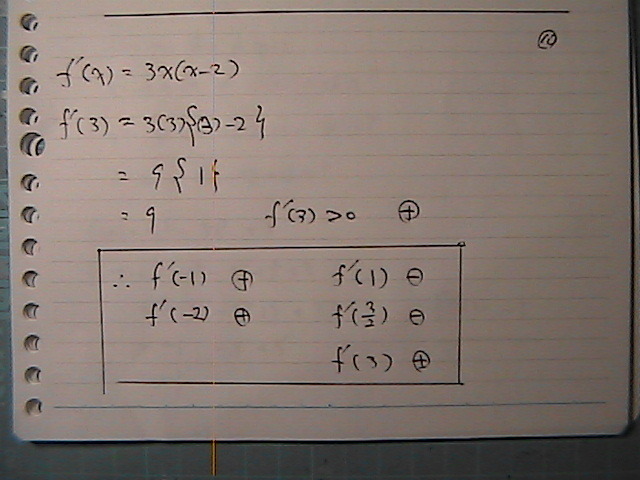 ⑩
f′(x) = 3x(x-2)
f′(3) = 3(3){(3)-2}
= 9{1}
= 9 f′(3) >0 ⊕
∴ f′(-1) ⊕ f′(1) ⊖
f′(-2) ⊕ f′(3/2) ⊖
f′(3) ⊕